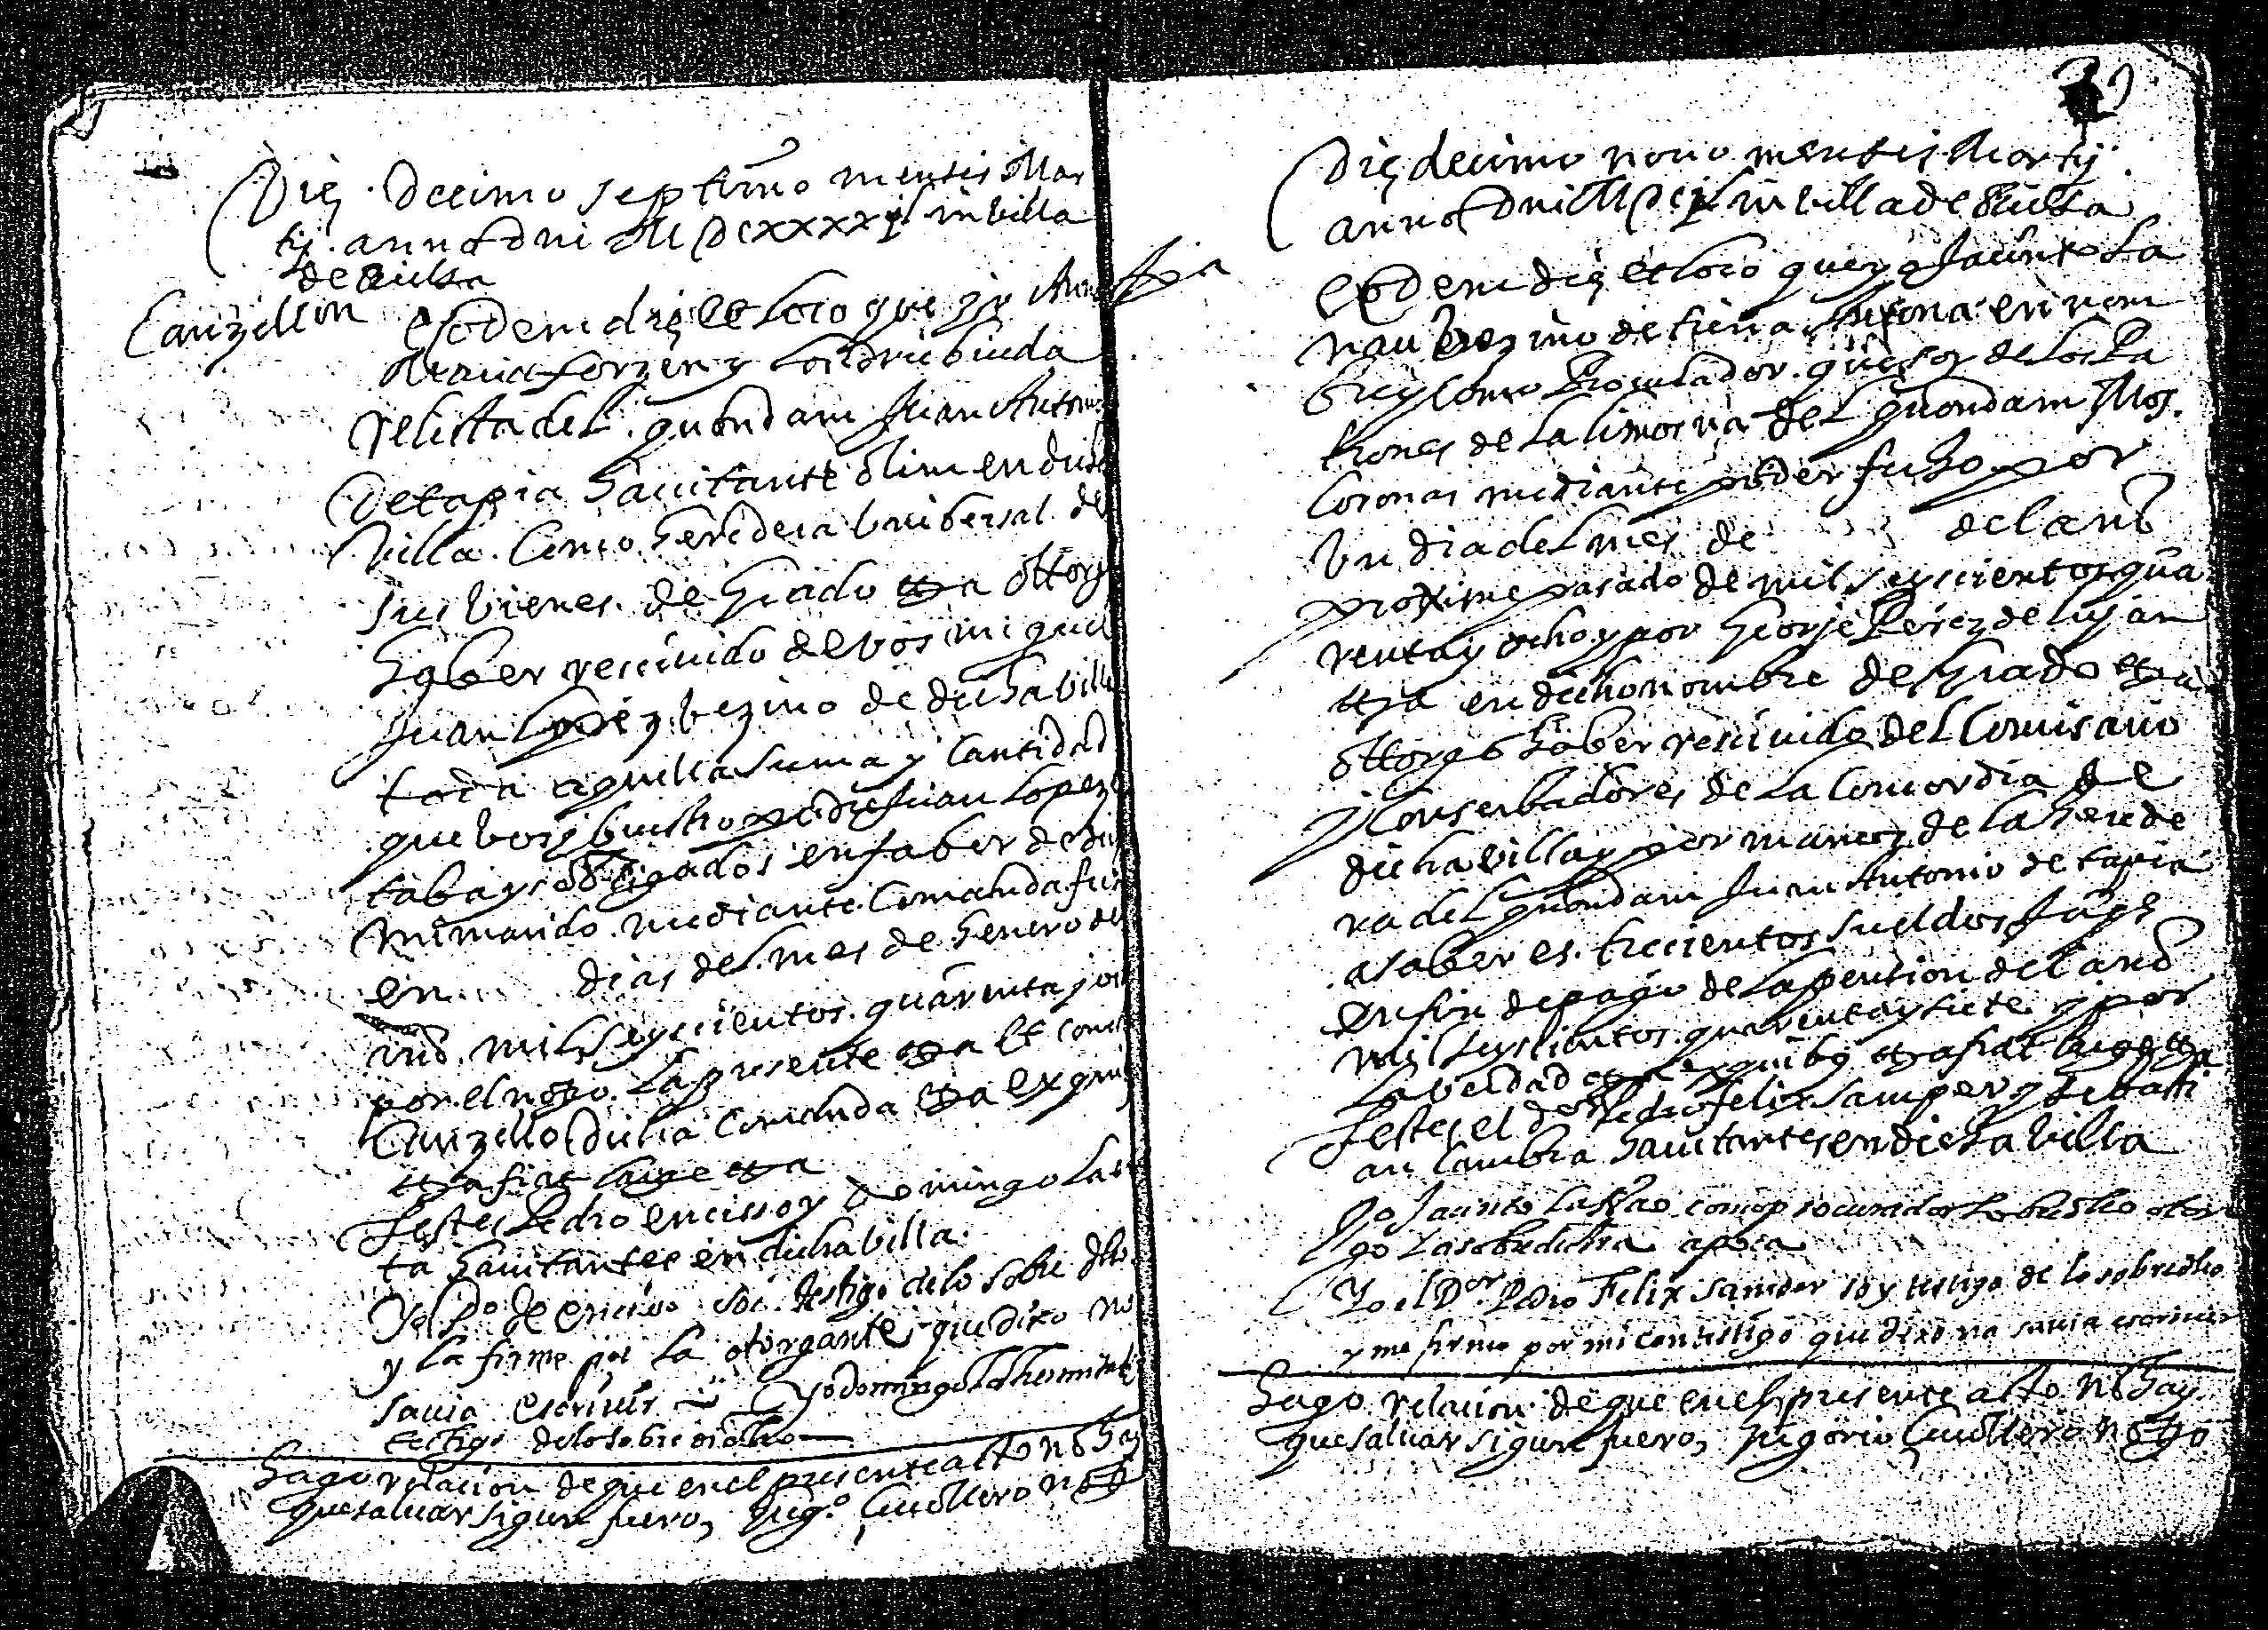 Die decimo septimo mensis Mar
tij anno Dni MDCxxxxxj in villa
de
Canzellon
Eodem die et loco que yo Ana
Maria Lorzen y biuda
relicta del quondam Juan Anton
de tapia hauitante olim en dicha
villa como heredera vnibersal de
sus bienes de grado etta ottorgo
haberresciuido de vos miguel
Juan Lopez bezino de dicha villa
toda aquella suma y cantidad
que vos y buestro pe dre Juan Lopez
tabays obligados en faber de di
mi marido mediante comanda fu
en dias del mes de henero del
ano mil seyscientos quarenta y
por el noto. la presente etta et
Canzello dicha comanda etta ex
etta fiat large etta
testes Pedro encisso y Domingo La
ta hauitantes en dicha villa
Yo P.o de enciso soi testigo de lo sobre dho
y la firme por la otorgante que dixo no
sauia escriuir Yo domingo
testigo de lo sobre dicho
hago relacion de que en el presente acto no hay
que saluar sigun fuero, Grego.o noto
39
Die decimo nono mensis Martij
anno Dni MDCjL in villa de
Apca
Eodem die et loco que yo Jacinto La
nau bezino de en nom
bre y como Procurador que soy de los Pa
trones de la limosna del quondam Mos.
Coronas mediante poder fecho por
vn dia del mes de del ano
proxime pasado de mil seyscientos qua
renta y ocho y por Giorje Perez de
etta en dicho nombre de grado etta
ottorgo haber resciuido del Comisario
y Conserbadores de la Concordia de
dicha villa y por manos de la herede
ra del quondam Juan Antonio de tapia
asaber es trecientos sueldos Jaqs
en fin de pago de la pension del ano
mil seyscientos quarenta y siete y por
la verdad etta ex quibus etta fiat large etta
testes el dor Pedro felix samper y Sebasti
an Cambra hauitantes en dicha villa
Yo Jacinto como procurador sobredicho otor
go la sobredicha apoca
Yo el Dor Pedro Felix samper soy testigo de lo sobredho
y me firmo por mi contestigo que dixo no sauia escriuir
hago relacion de que en el presente acto no hay
que saluar sigun fuero, Gregorio noto